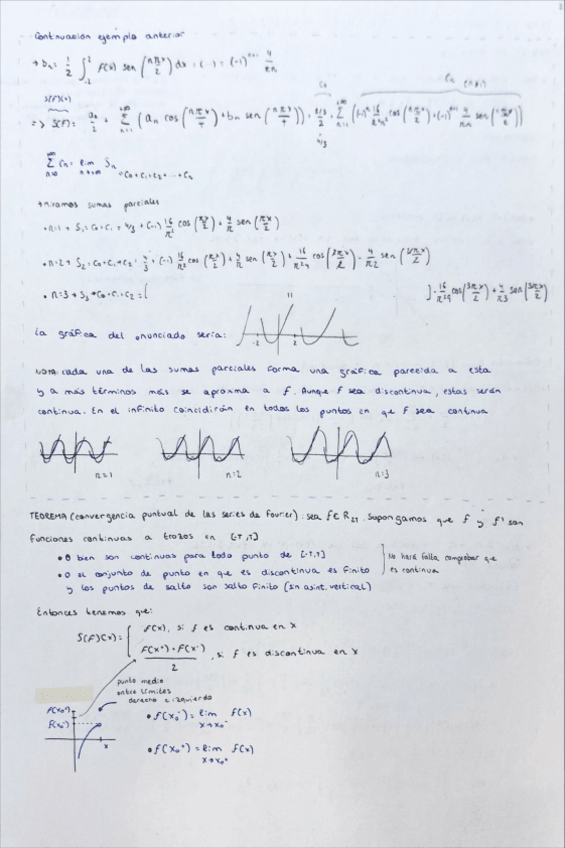 Continuación ejemplo anterior
→ bₙ = 1/2 ∫₋₂² f(x) sen(nπx/2) dx = (...) = (-1)ⁿ⁺¹ 4/πn
S(f)(x)
=> S(f) = a₀/2 + Σₙ₌₁^∞ (aₙ cos(nπx/T) + bₙ sen(nπx/T)) = 8/3/2 + Σₙ₌₁^+∞ ((-1)ⁿ 16/π²n² cos(nπx/2) + (-1)ⁿ⁺¹ 4/πn sen(nπx/2))
C₀
Cₙ (n≠1)
4/3
Σₙ₌₀^∞ Cₙ = lim n→+∞ Sₙ
= C₀ + C₁ + C₂ + ... + Cₙ
→ miramos sumas parciales
• n=1 → S₁ = C₀ + C₁ = 4/3 + (-1) 16/π² cos(πx/2) + 4/π sen(πx/2)
• n=2 → S₂ = C₀ + C₁ + C₂ = 4/3 + (-1) 16/π² cos(πx/2) + 4/π sen(πx/2) + 16/π²4 cos(2πx/2) - 4/π2 sen(2πx/2)
• n=3 → S₃ = C₀ + C₁ + C₂ = [ ] - 16/π²9 cos(3πx/2) + 4/π3 sen(3πx/2)
La gráfica del enunciado seria:
-2 2
NOTA: cada una de las sumas parciales forma una gráfica parecida a esta
y a más términos más se aproxima a f. Aunqe f sea discontinua, estas serán
continua. En el infinito coincidirán en todos los puntos en que f sea continua
n=1 n=2 n=3
TEOREMA (convergencia puntual de las series de Fourier): sea f∈R₂T. Supongamos que f y f' son
funciones continuas a trozos en [-T,T]
• O bien son continuas para todo punto de [-T,T]
• O el conjunto de punto en que es discontinua es finito
y los puntos de salto son salto finito (sin asint. vertical)
No hará falta comprobar que
es continua
Entonces tenemos que:
S(f)(x) = { f(x), si f es continua en x
f(x⁺) + f(x⁻) / 2, si f es discontinua en x
punto medio
entre límites
derecho e izquierdo
f(x₀⁺)
f(x₀⁻)
x
• f(x₀⁻) = lim x→x₀⁻ f(x)
• f(x₀⁺) = lim x→x₀⁺ f(x)